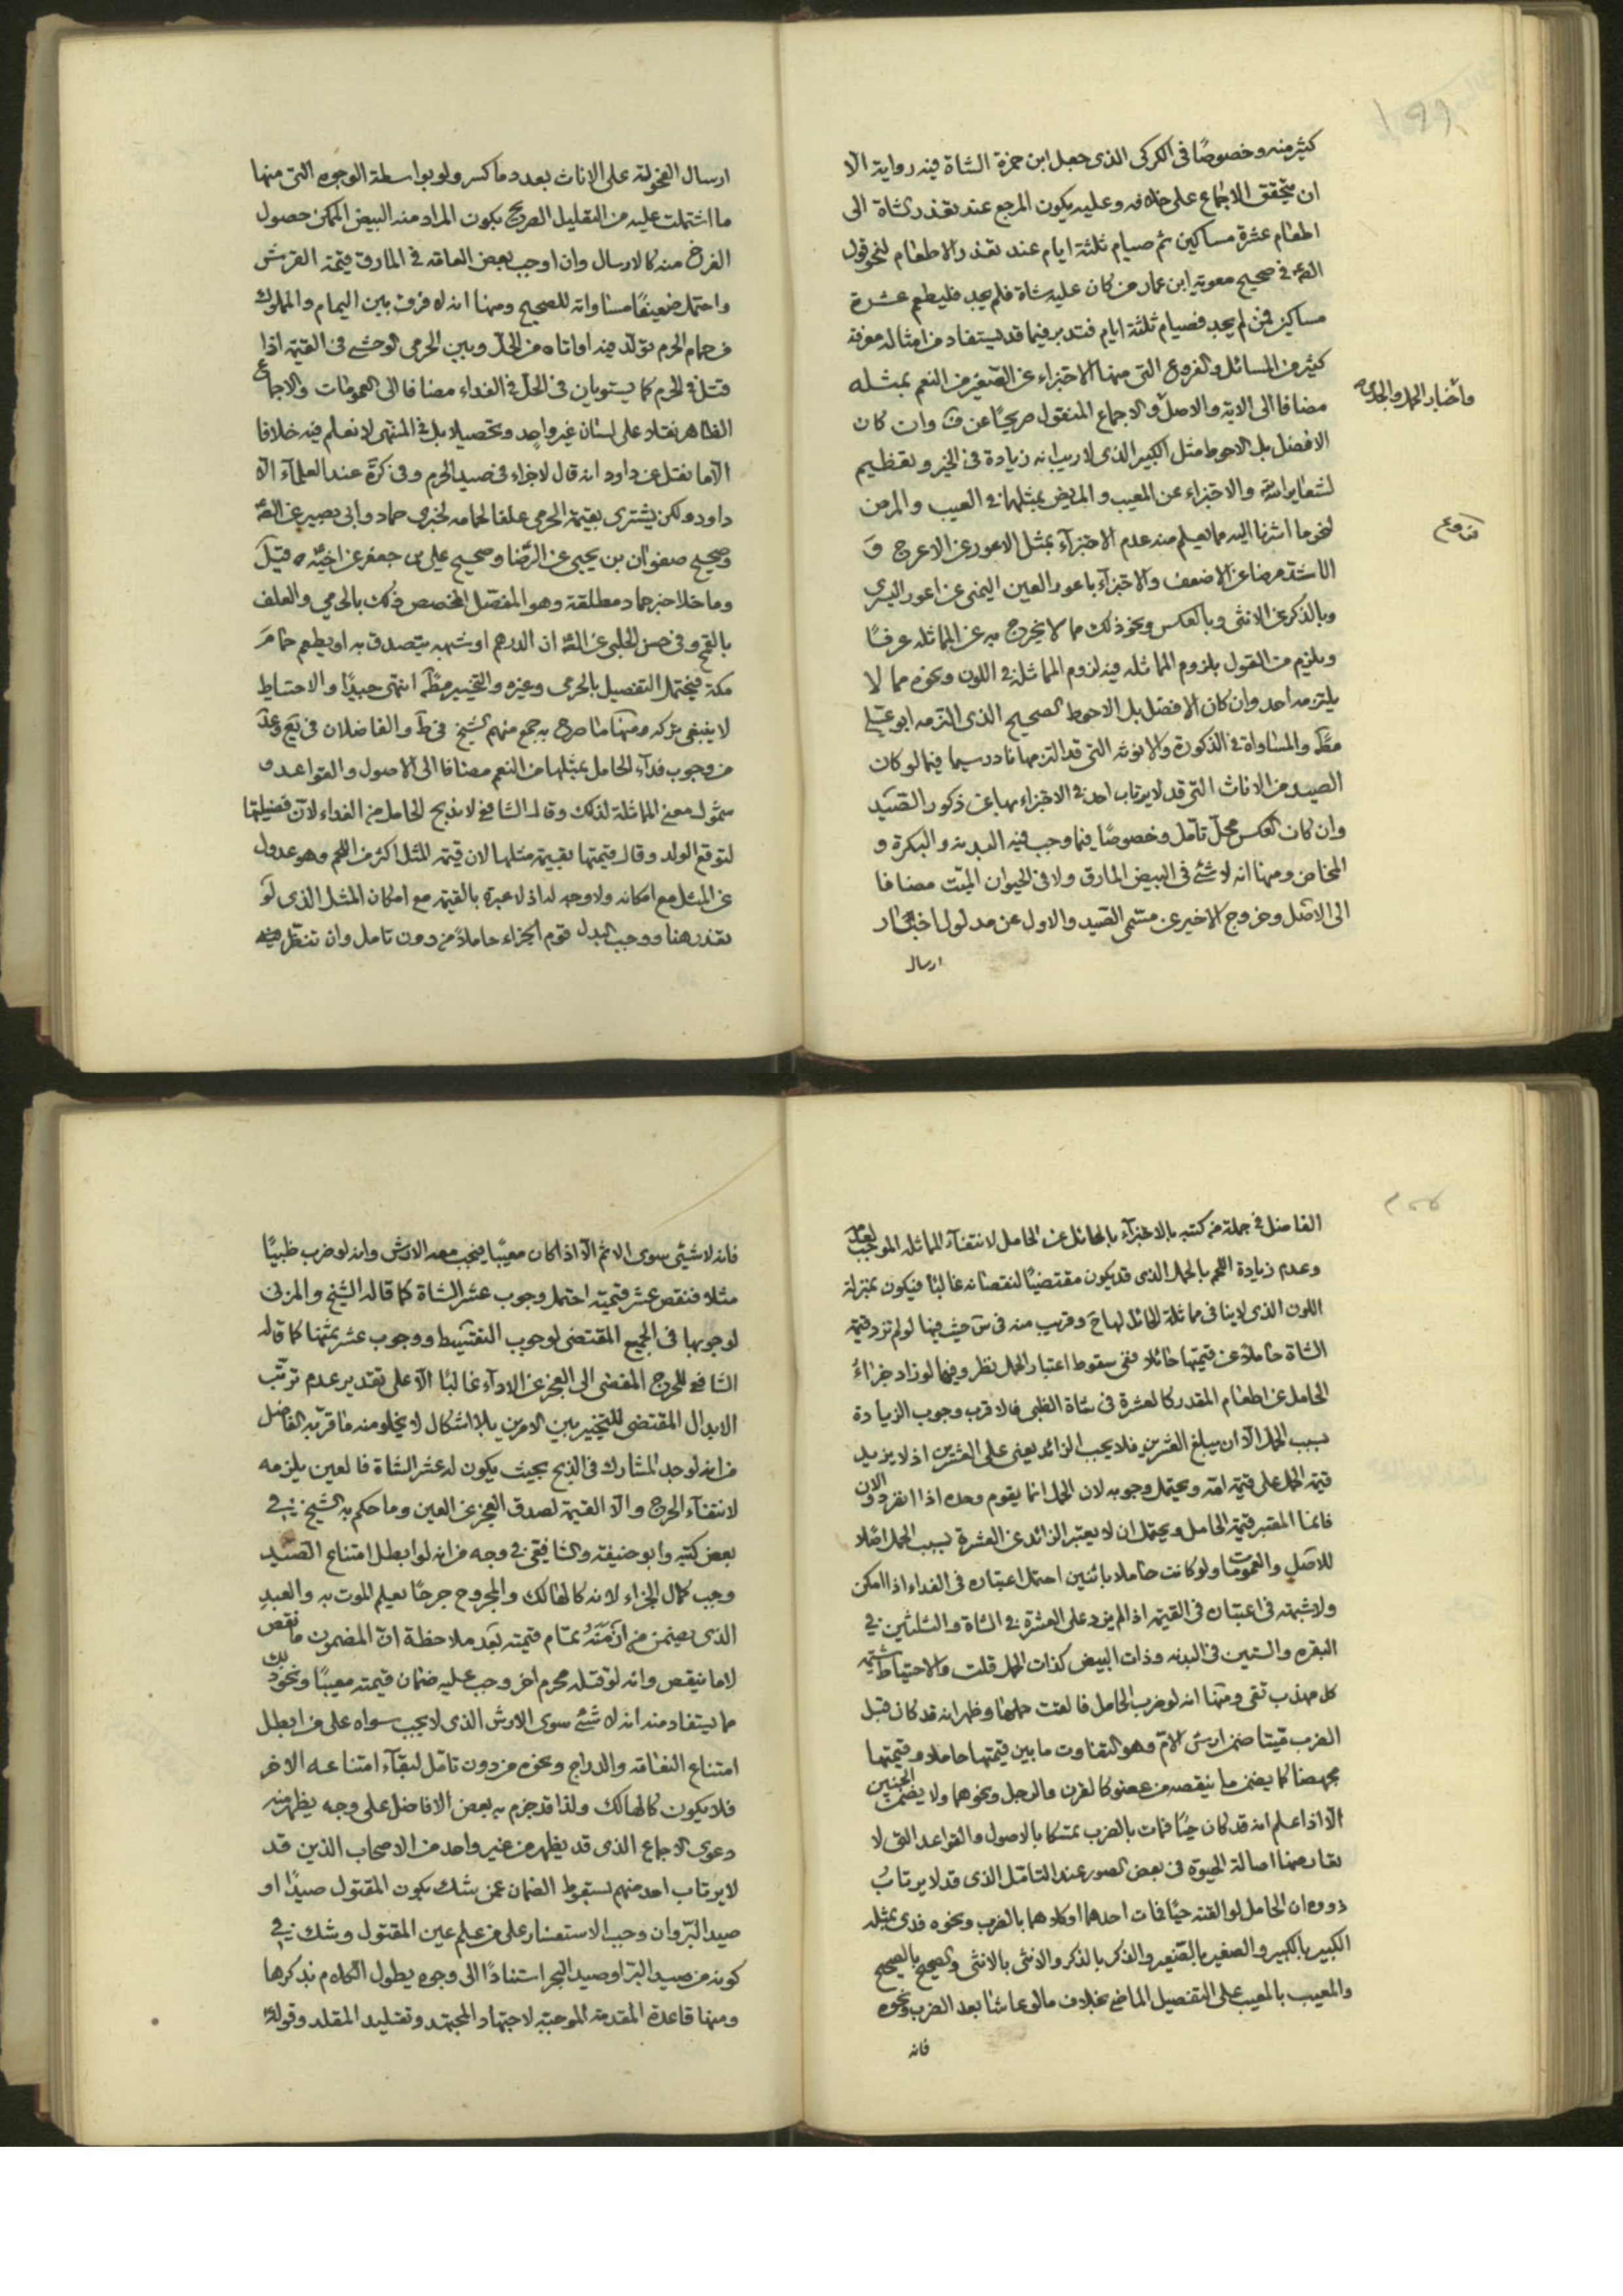 ١٩٩
كثير منه وخصوصًا في الكركي الذي جعل ابن حمزة الشاة فيه رواية الا
ان يتحقق الاجماع على خلافه وعليه يكون المرجع عند تعذر الشاة الى
اطعام عشرة مساكين ثم صيام ثلثة ايام عند تعذر الاطعام لنحو قول
الصّ في صحيح معوية ابن عمار من كان عليه شاة فلم يجد فليطعم عشرة
مساكين فمن لم يجد فصيام ثلثة ايام فتدبر فيما قد يستفاد من امثاله معرفة
كثير من المسائل والفروع التي منها الاجتزاء عن الصّغير من النعم بمثله
واخبار الحمل والجدي
مضافا الى الاية والاصل والاجماع المنقول صريحًا عن ف وان كان
الافضل بل الاحوط مثل الكبير الذي لا ريب انه زيادة في الخير وتعظيم
لشعاير الله والاجتزاء عن المعيب والمريض بمثلهما في العيب والمرض
لنحو ما اشرنا اليه مما يعلم منه عدم الاجتزآء بمثل الاعور عن الاعرج و
الاشدّ مرضا عن الاضعف والاجتزآء باعور العين اليمنى عن اعور اليسرى
وبالذكر عن الانثى وبالعكس ونحو ذلك مما لا يخرج به عن المماثله عرفًا
ويلزم من القول بلزوم المماثله فيه لزوم المماثلة في اللون ونحوه مما لا
يلتزمه احد وان كان الافضل بل الاحوط الصحيح الذي التزمه ابو علي
مطّ والمساواة في الذكورة والانوثه التي قد التزمها نادر سيما فيما لو كان
الصيد من الاناث التي قد لا يرتاب احد في الاجتزاء بها عن ذكور الصّيد
وان كان العكس محلّ تأمل وخصوصًا فيما وجب فيه البدنه والبكرة و
المخاض ومنها انه لا شئ في البيض المارق ولا في الحيوان الميّت مضافا
الى الاصل وخروج الاخير عن مسمّى الصّيد والاول عن مدلول اخبار
ارسال
ارسال الفحولة على الاناث بعدد ما كسر ولو بواسطة الوجوه التي منها
ما اشتملت عليه من التعليل الصريح بكون المراد منه البيض الممكن حصول
الفرخ منه كالارسال وان اوجب بعض العامّه في المارق قيمة القرش
واحتمل ضعيفًا مساواته للصحيح ومنها انه لا فرق بين اليمام والمملوك
من حمام الحرم تولّد فيه او اتاه من الحلّ وبين الحرمي الوحشي في القيمة اذا
قتل في الحرم كما يستويان في الحلّ في الفداء مضافا الى العمومات والاجماع
الظاهر نقله على لسان غير واحد وتحصيلا بل في المنتهى لا نعلم فيه خلافا
الّا ما نقل عن داود انه قال لا جزاء في صيد الحرم وفي كرة عند العلمآء الّا
داود ولكن يشترى بقيمة الحرمي علفا لحمامه لخبري حماد وابي بصير عن الصّ
وصحيح صفوان بن يحيى عن الرّضا وصحيح علي بن جعفر عن اخيه ع قيل
وما خلا خبر حماد مطلقة وهو المفصّل المخصص ذلك بالحرمي والعلف
بالقمح وفي حسن الحلبي عن الصّ ان الدرهم او شبهه يتصدق به او يطعم حمام
مكة فيحتمل التفصيل بالحرمي وغيره والتخيير مطّ انتهى جيدًا والاحتياط
لا ينبغي تركه ومنها ما صرح به جمع منهم الشيخ في ط والفاضلان في يع وعد
من وجوب فدآء الحامل بمثلها من النعم مضافا الى الاصول والقواعد و
شمول معنى المماثلة لذلك وقال الشافعي لا نذبح الحامل من الفداء لانّ فضيلتها
لتوقع الولد وقال قيمتها بقيمة مثلها لان قيمة المثل اكثر من اللحم وهو عدول
عن المثل مع امكانه ولا وجه له اذ لا عبرة بالقيمة مع امكان المثل الذي لو
تعذر هنا ووجب البدل قوم الجزاء حاملا من دون تامل وان تنظّر فيه
٢٠٠
الفاضل في جملة من كتبه بالاجتزآء بالحائل عن الحامل لانتفآء المماثله الموجب لعدم
وعدم زيادة اللحم بالحمل الذي قد يكون مقتضيًا لنقصانه غالبًا فيكون بمنزلة
اللون الذي لا ينافي مماثلة الحائل لها وقريب منه في س حيث فيها لو لم تزد قيمة
الشاة حاملا عن قيمتها حائلا ففي سقوط اعتبار الحمل نظر وفيما لو زاد جزاءُ
الحامل عن اطعام المقدر كالعشرة في شاة الظبي فالاقرب وجوب الزيادة
بسبب الحمل الّا ان يبلغ العشرين فلا يجب الزائد يعني على العشرين اذ لا يزيد
قيمة الحمل على قيمة امّه ويحتمل وجوبه لان الحمل انما يقوم وحده اذا انفرد والان
فانما المعتبر قيمة الحامل ويحتمل ان لا يعتبر الزائد عن العشرة بسبب الحمل اصلا
للاصل والعمومات ولو كانت حاملا باثنين احتمل اعتباره في الفداء اذا امكن
ولا شبهة في اعتباره في القيمة اذا لم يزد على العشرة في الشاة والثلثين في
البقره والستين في البدنه وذات البيض كذات الحمل قلت والاحتياط شيمة
كل مهذب تقي ومنها انه لو ضرب الحامل فالقت حملها وظهر انه قد كان قبل
الضرب ميّتا ضمن ارش الامّ وهو التفاوت ما بين قيمتها حاملا وقيمتها
مجهضا كما يضمن ما ينقصه من عضو كالقرن والرجل ونحوهما ولا يضمن الجنين
الّا اذا علم انه قد كان حيًّا فمات بالضرب تمسّكا بالاصول والقواعد التي لا
تعارضها اصالة الحيوة في بعض الصور عند التامّل الذي قد لا يرتابُ
ذووه ان الحامل لو القته حيًّا فمات احدهما او كلاهما بالضرب ونحوه فدى بمثله
الكبير بالكبير والصغير بالصّغير والذكر بالذكر والانثى بالانثى والصحيح بالصحيح
والمعيب بالمعيب على التفصيل الماضي بخلاف ما لو عاشا بعد الضرب ونحوه
فانه
فانه لا شيئ سوى الاثم الّا اذا كان معيبًا فيجب معه الارش وانه لو ضرب ظبيًا
مثلا فنقص عشر قيمته احتمل وجوب عشر الشاة كما قاله الشيخ والمزني
لوجوبها في الجميع المقتضي لوجوب التقسيط ووجوب عشر ثمنها كما قاله
الشافعي للحرج المفضي الى العجز عن الاداء غالبًا الّا على تقدير عدم ترتّب
الابدال المقتضي للتخيير بين الامرين بلا اشكال لا يخلو منه ما قرّبه الفاضل
من انه لو وجد المشارك في الذبح بحيث يكون له عشر الشاة فالعين يلزمه
لانتفآء الحرج والّا القيمة لصدق العجز عن العين وما حكم به الشيخ في
بعض كتبه وابو حنيفة والشافعي في وجه من انه لو ابطل امتناع الصّيد
وجب كمال الجزاء لانه كالهالك والمجروح جرحًا يعلم الموت به والعبد
الذي يضمن من ازمنه تمام قيمته بعد ملاحظة انّ المضمون ما نقص
لا ما ينقص وانه لو قتله محرم اخر وجب عليه ضمان قيمته معيبًا ونحو ذلك
مما يستفاد منه انه لا شئ سوى الارش الذي لا يجب سواه على من ابطل
امتناع النعامة والدراج ونحوه من دون تامّل لبقآء امتناعه الاخر
فلا يكون كالهالك ولذا قد جزم به بعض الافاضل على وجه يظهر منه
دعوى الاجماع الذي قد يظهر من غير واحد من الاصحاب الذين قد
لا يرتاب احد منهم بسقوط الضمان عمن شك بكون المقتول صيدًا او
صيد البرّ وان وجب الاستفسار على من علم عين المقتول وشك في
كونه من صيد البرّ او صيد البحر استنادًا الى وجوه يطول الكلام بذكرها
ومنها قاعدة المقدمة الموجبة لاجتهاد المجتهد وتقليد المقلد وقوله